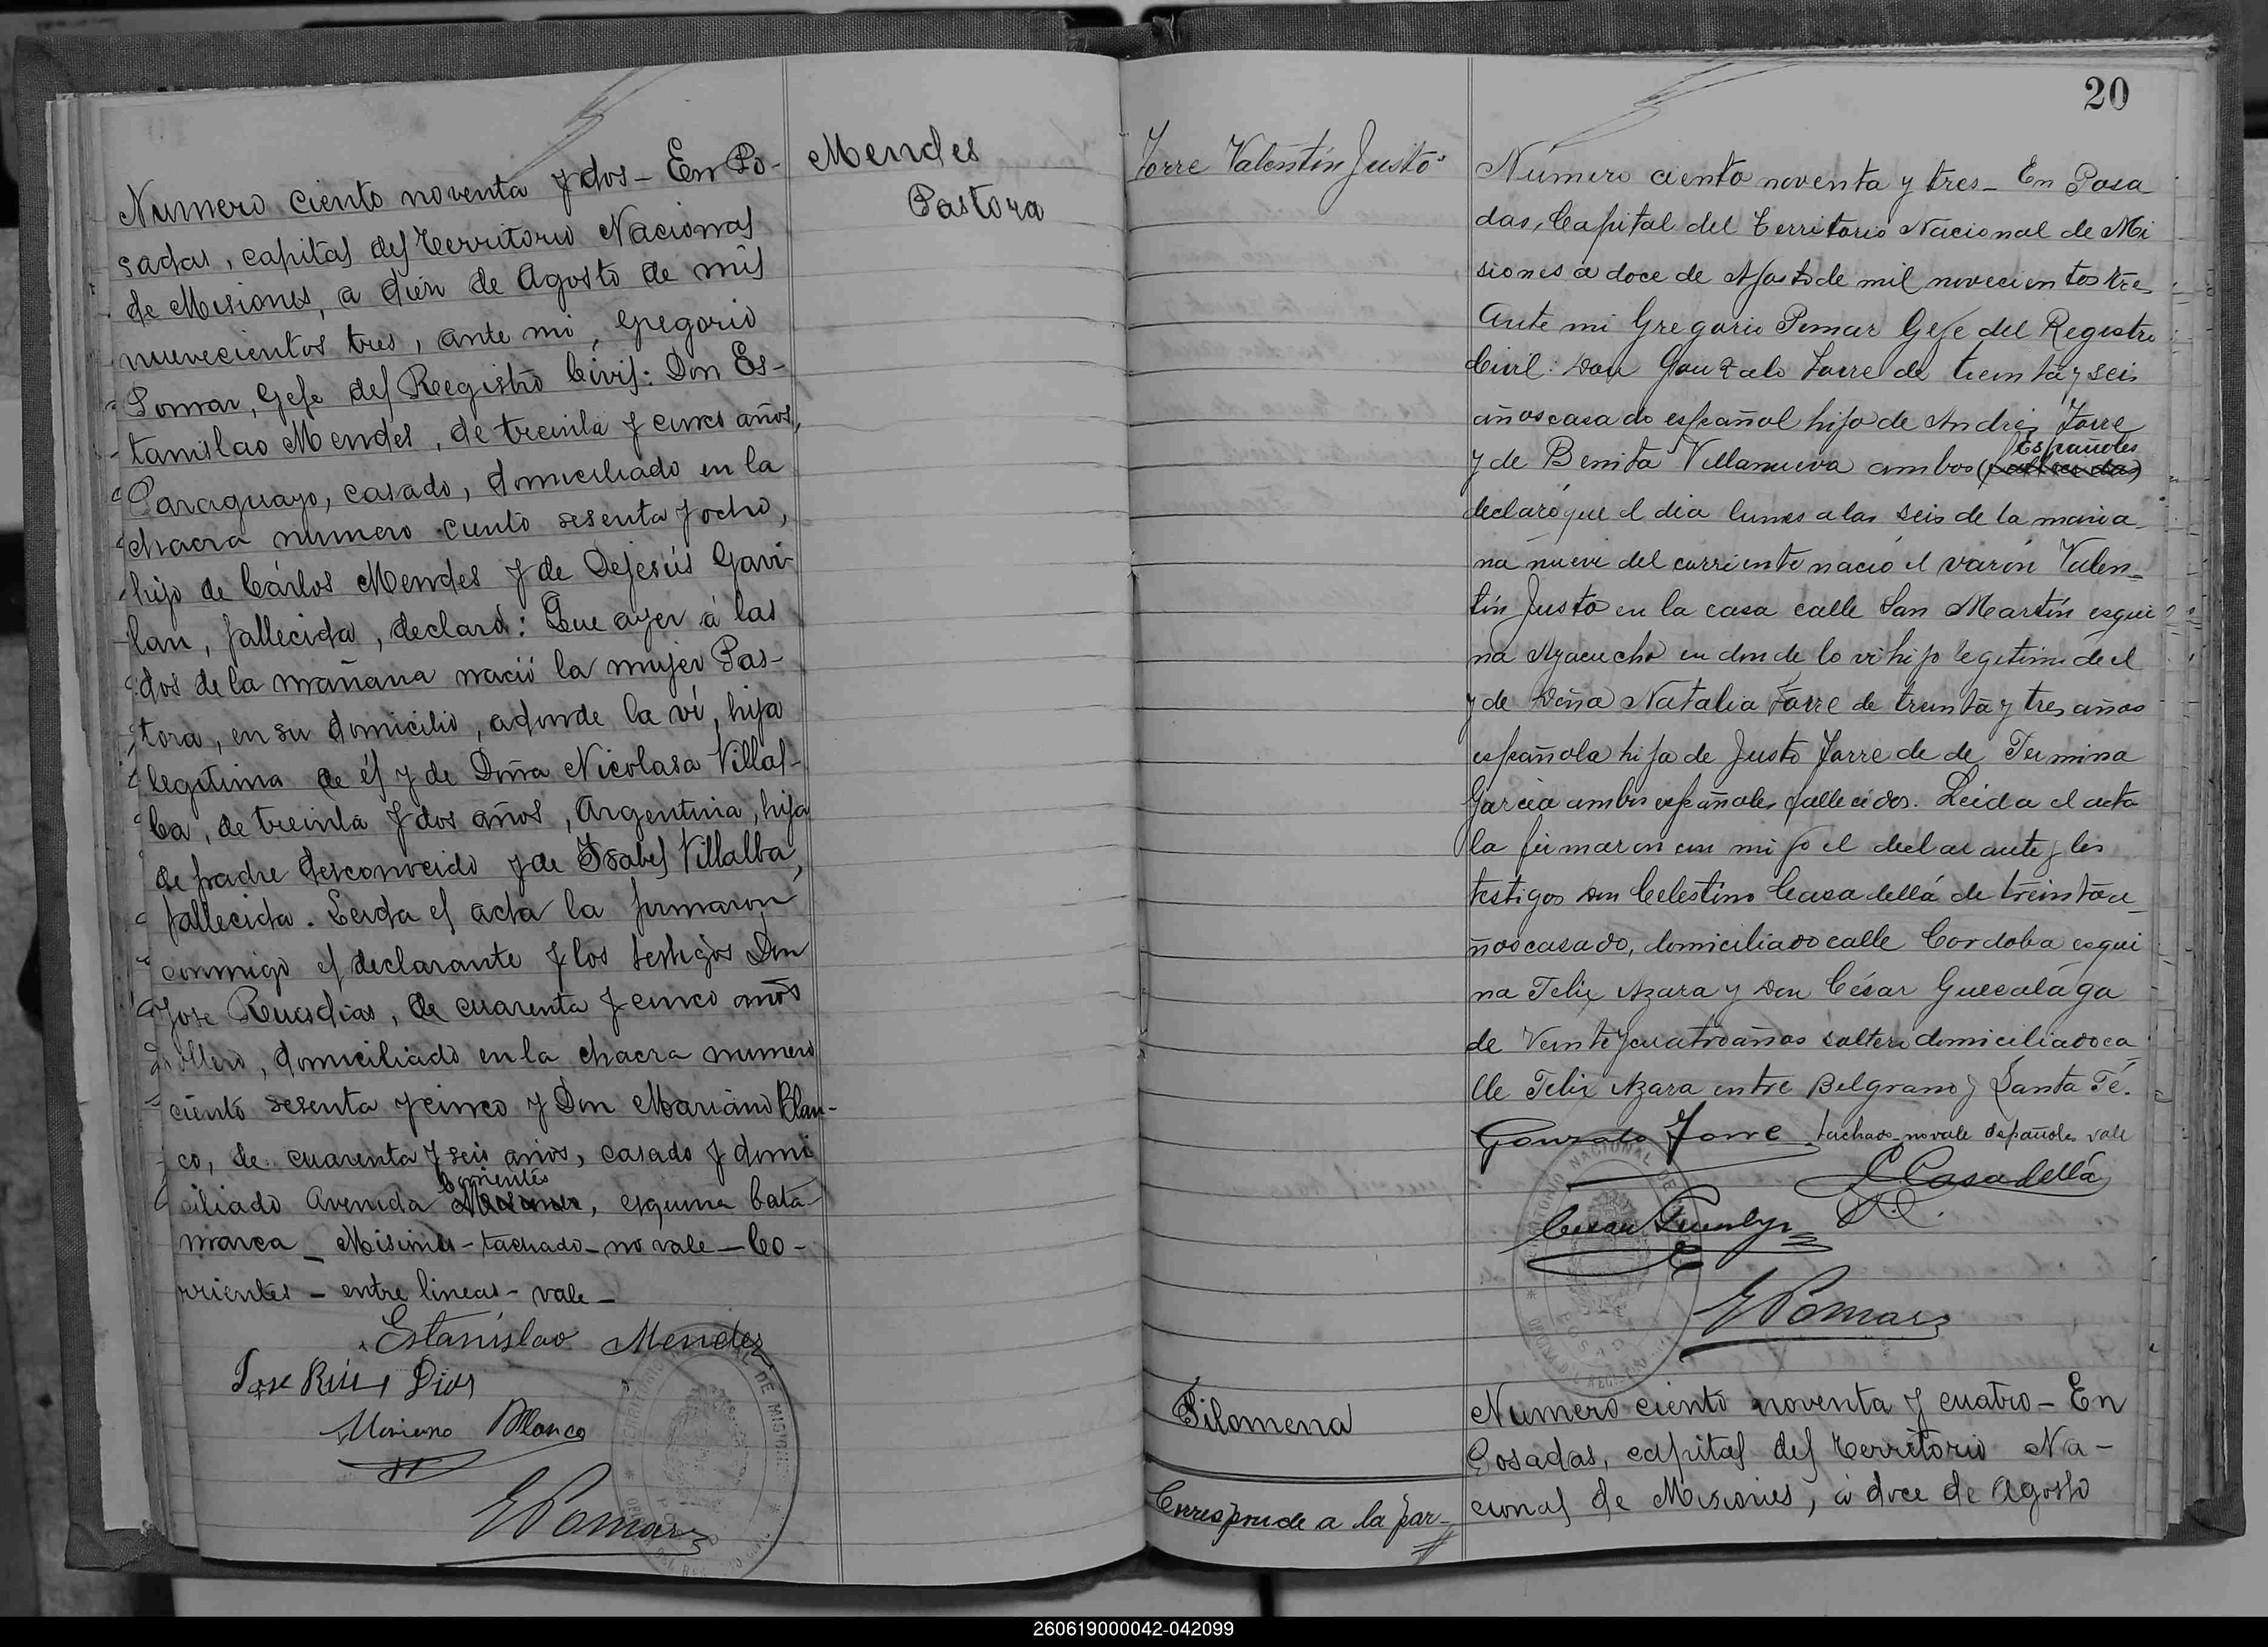 Numero ciento noventa y dos - En Po-
sadas, capital del Territorio Nacional
de Misiones, a diez de Agosto de mil
nuevecientos tres, ante mi, Gregorio
Pomar, Gefe del Registro Civil: Don Es-
tanislao Mendes, de treinta y cinco años,
Paraguayo, casado, domiciliado en la
chacra numero ciento sesenta y ocho,
hijo de Cárlos Mendes y de Dejesús Gavi-
lan, fallecida, declaró: Que ayer á las
dos de la mañana nació la mujer Pas-
tora, en su domicilio, adonde la ví, hija
legitima de él y de Doña Nicolasa Villal-
ba, de treinta y dos años, Argentina, hija
de padre desconocido y de Isabel Villalba,
fallecida. Leida el acta la firmaron
conmigo el declarante y los testigos Don
Jose Ruisdias, de cuarenta y cinco años
soltero, domiciliado en la chacra numero
ciento sesenta y cinco y Don Mariano Blan-
co, de cuarenta y seis años, casado y domi
Corrientes
ciliado Avenida Misiones, esquina Cata-
marca - Misiones - tachado - no vale - Co-
rrientes - entre lineas - vale -
Estanislao Mendez
Jose Ruis Dias
Mariano Blanco
G Pomar
Mendes
Pastora
Torre Valentín Justo
20
Número ciento noventa y tres - En Posa
das, Capital del Territorio Nacional de Mi
siones a doce de Agosto de mil novecientos tres
Ante mi Gregorio Pomar Gefe del Registro
Civil: Don Gonzalo Torre de treinta y seis
años casado español hijo de Andres Torre
Españoles
y de Benita Villanueva ambos (fallecidos)
declaró que el dia lunes a las seis de la maña
na nueve del corriente nació el varón Valen-
tín Justo en la casa calle San Martín esqui
na Ayacucho en donde lo vi hijo legitimo de el
y de Doña Natalia Torre de treinta y tres años
española hija de Justo Torre de de Fermina
Garcia ambos españoles fallecidos. Leida el acta
la firmaron con migo el declarante y los
testigos Don Celestino Casadellá de treinta a-
ños casado, domiciliado calle Cordoba esqui
na Felix Azara y Don César Guecalága
de Veinte y cuatro años soltero domiciliado ca
lle Felix Azara entre Belgrano y Santa Fé.
Gonzalo Torre tachado no vale Españoles vale
C Casadellá
G Pomar
Filomena
Corresponde a la par-
Numero ciento noventa y cuatro - En
Posadas, capital del Territorio Na-
cional de Misiones, á doce de Agosto
260619000042-042099